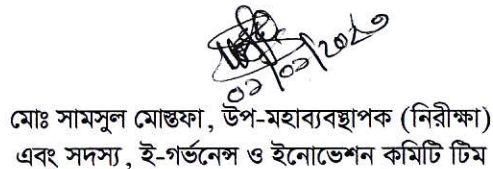 মোঃ সামসুল মোস্তফা, উপ-মহাব্যবস্থাপক (নিরীক্ষা)
এবং সদস্য, ই-গর্ভনেন্স ও ইনোভেশন কমিটি টিম